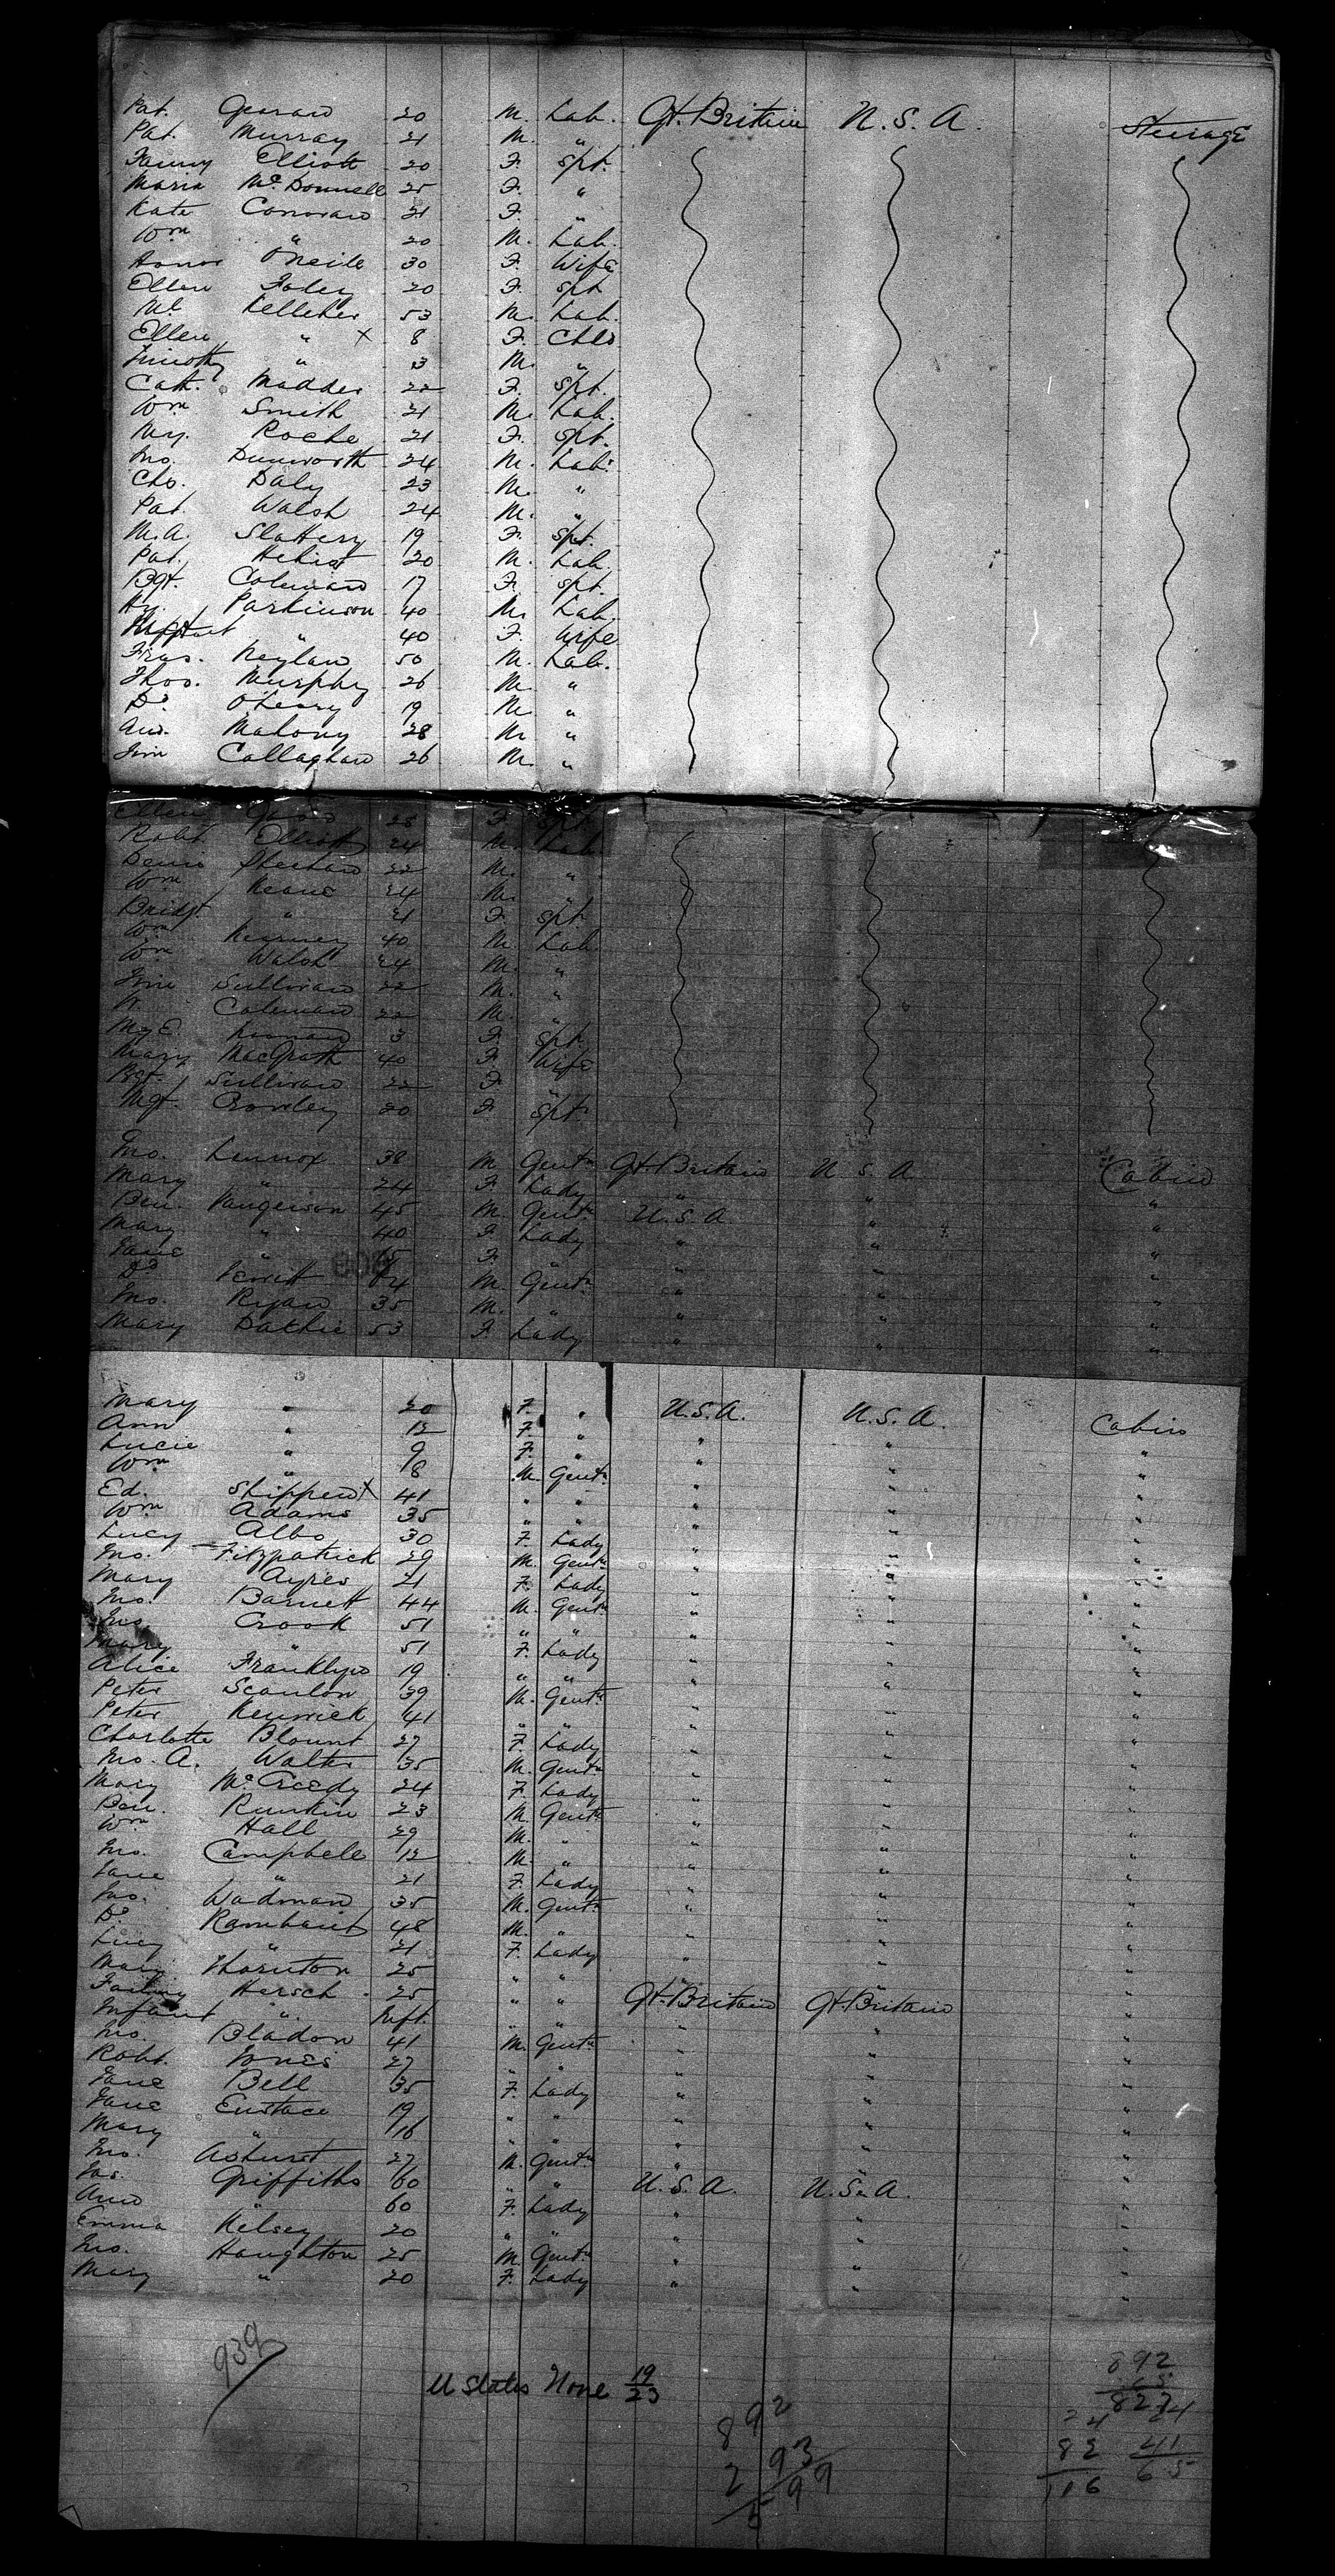 Pat. Geran 20 M. Lab. Gt. Britain U. S. A. Steerage
Pat. Murray 21 M. "
Fanny Elliott 20 F. Spt.
Maria McDonnell 25 F. "
Kate Conoran 21 F. "
Wm " 20 M. Lab.
Honor O'Neile 30 F. Wife
Ellen Foley 20 F. Spt
Ml Kelleher 53 M. Lab.
Ellen " x 8 F. Chld
Timothy " 3 M. "
Cath. Madder 22 F. Spt.
Wm Smith 21 M. Lab.
My. Roche 21 F. Spt.
Jno. Dunworth 24 M. Lab.
Chs. Daly 23 M. "
Pat. Walsh 24 M. "
M.A. Slattery 19 F. Spt.
Pat. 20 M. Lab.
Bgt. Coleman 17 F. Spt.
Hy. Parkinson 40 M. Lab.
" 40 F. Wife
Fras. Neylan 50 M. Lab.
Thos. Murphy 26 M. "
Dl. O'Leary 19 M. "
And. Mahony 28 M "
Jim Callaghan 26 M. "
Ellen 25 F. Spt.
Robt. Elliott 24 M. Lab.
Denis Sheehan 22 M. "
Wm Keane 24 M. "
Bridgt. " 21 F. Spt.
Wm Kearney 40 M. Lab.
Wm Walsh 24 M. "
Jim Sullivan 22 M. "
Coleman 22 M. "
My E. 3 F. Spt.
Mary MacGrath 40 F. Wife
Bgt. Sullivan 22 F. "
Mgt. Crowley 20 F. Spt.
Jno. Lennox 38 M Gentn Gt. Britain U S A Cabin
Mary " 24 F Lady " " "
Ben. 45 M. Gentn U.S.A. " "
Mary " 40 F. Lady " " "
Jane " 65 F. " " " "
Dd. 64 M. Gentn " " "
Jno. Ryan 35 M. " " " "
Mary Dathie 53 F Lady " " "
Mary " 20 F. " U.S.A. U.S.A. Cabin
Ann " 12 F. " " " "
Lucie " 9 F. " " " "
Wm " 8 M. Gentn " " "
Ed. Shippen x 41 " " " " "
Wm Adams 35 " " " " "
Lucy Albo 30 F. Lady " " "
Jno. Fitzpatrick 29 M. Gentn " " "
Mary Ayres 21 F. Lady " " "
Jno. Barnett 44 M. Gentn " " "
Jno. Crook 51 " " " " "
Mary " 51 F. Lady " " "
Alice Franklyn 19 " " " " "
Peter Scanlon 39 M. Gentn " " "
Peter Kenrick 41 " " " " "
Charlotte Blount 27 F. Lady " " "
Jno. A. Walter 35 M. Gentn " " "
Mary McCreedy 24 F. Lady " " "
Ben. Runkin 23 M. Gentn " " "
Wm Hall 29 M. " " " "
Jno. Campbell 12 M. " " " "
Jane " 21 F. Lady " " "
Jno. Wadman 35 M. Gentn " " "
Dd. 48 M. " " " "
Lucy " 21 F. Lady " " "
Mary Thornton 25 " " " " "
Hersch 25 " " Gt. Britain Gt. Britain "
Infant " Inft. " " " " "
Jno. Bladon 41 M. Gentn " " "
Robt. Jones 27 " " " " "
Jane Bell 35 F. Lady " " "
Jane Eustace 19 " " " " "
Mary " 16 " " " " "
Jno. Ashurst 27 M. Gentn " " "
Jas. Griffiths 60 " " U. S. A. U. S. A. "
Ann " 60 F. Lady " " "
Emma Kelsey 20 " " " " "
Jno. Haughton 25 M. Gentn " " "
Mary " 20 F. Lady " " "
939
U States None 19/23
892
65
827
892
2 93
599
24
82
116
24
41
65